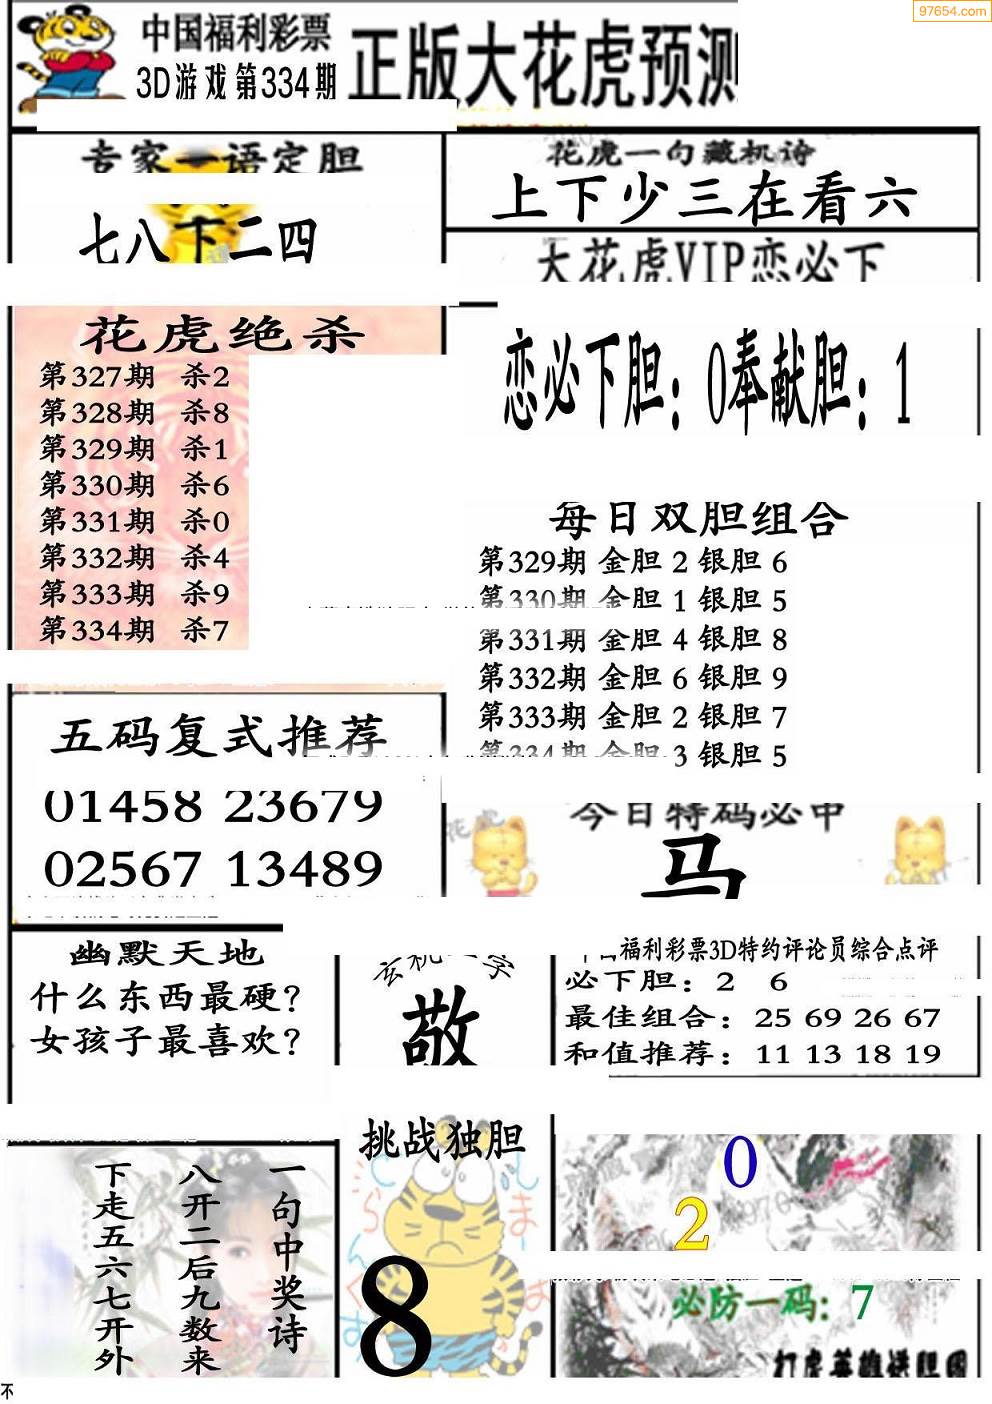 97654.com
中国福利彩票
3D游戏第334期
正版大花虎预测
专家一语定胆
七八下二四
花虎一句藏机诗
上下少三在看六
大花虎VIP恋必下
恋必下胆：0奉献胆：1
花虎绝杀
第327期 杀2
第328期 杀8
第329期 杀1
第330期 杀6
第331期 杀0
第332期 杀4
第333期 杀9
第334期 杀7
每日双胆组合
第329期 金胆 2 银胆 6
第330期 金胆 1 银胆 5
第331期 金胆 4 银胆 8
第332期 金胆 6 银胆 9
第333期 金胆 2 银胆 7
第334期 金胆 3 银胆 5
五码复式推荐
01458 23679
02567 13489
今日特码必中
马
幽默天地
什么东西最硬？
女孩子最喜欢？
敬
中国福利彩票3D特约评论员综合点评
必下胆：2 6
最佳组合：25 69 26 67
和值推荐：11 13 18 19
一句中奖诗
八开二后九数来
下走五六七开外
挑战独胆
8
0
2
必防一码：7
打虎英雄进胆图
不